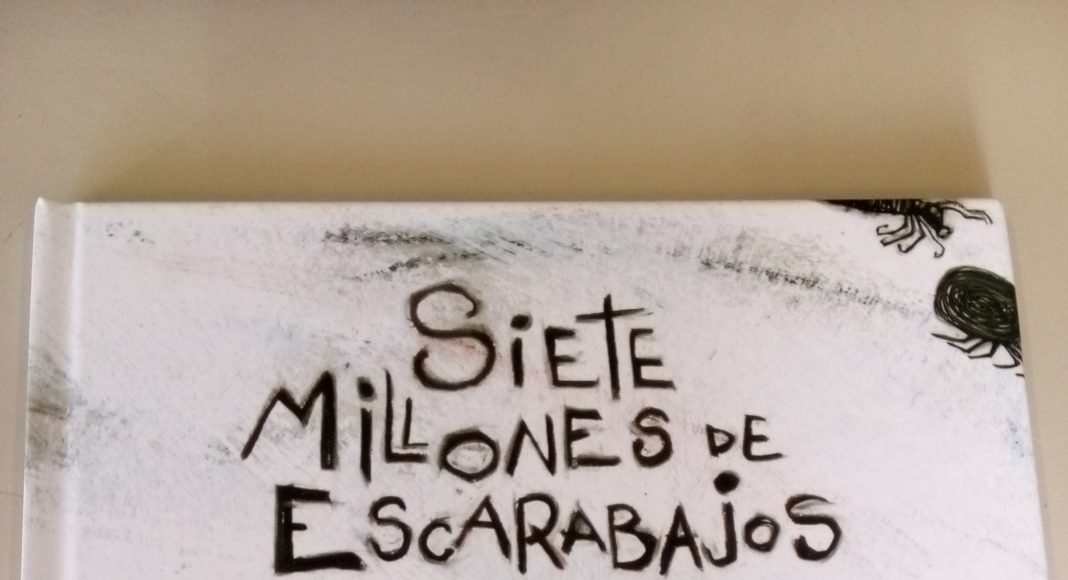 SiETE
MiLLONES DE
ESCARABAjOS